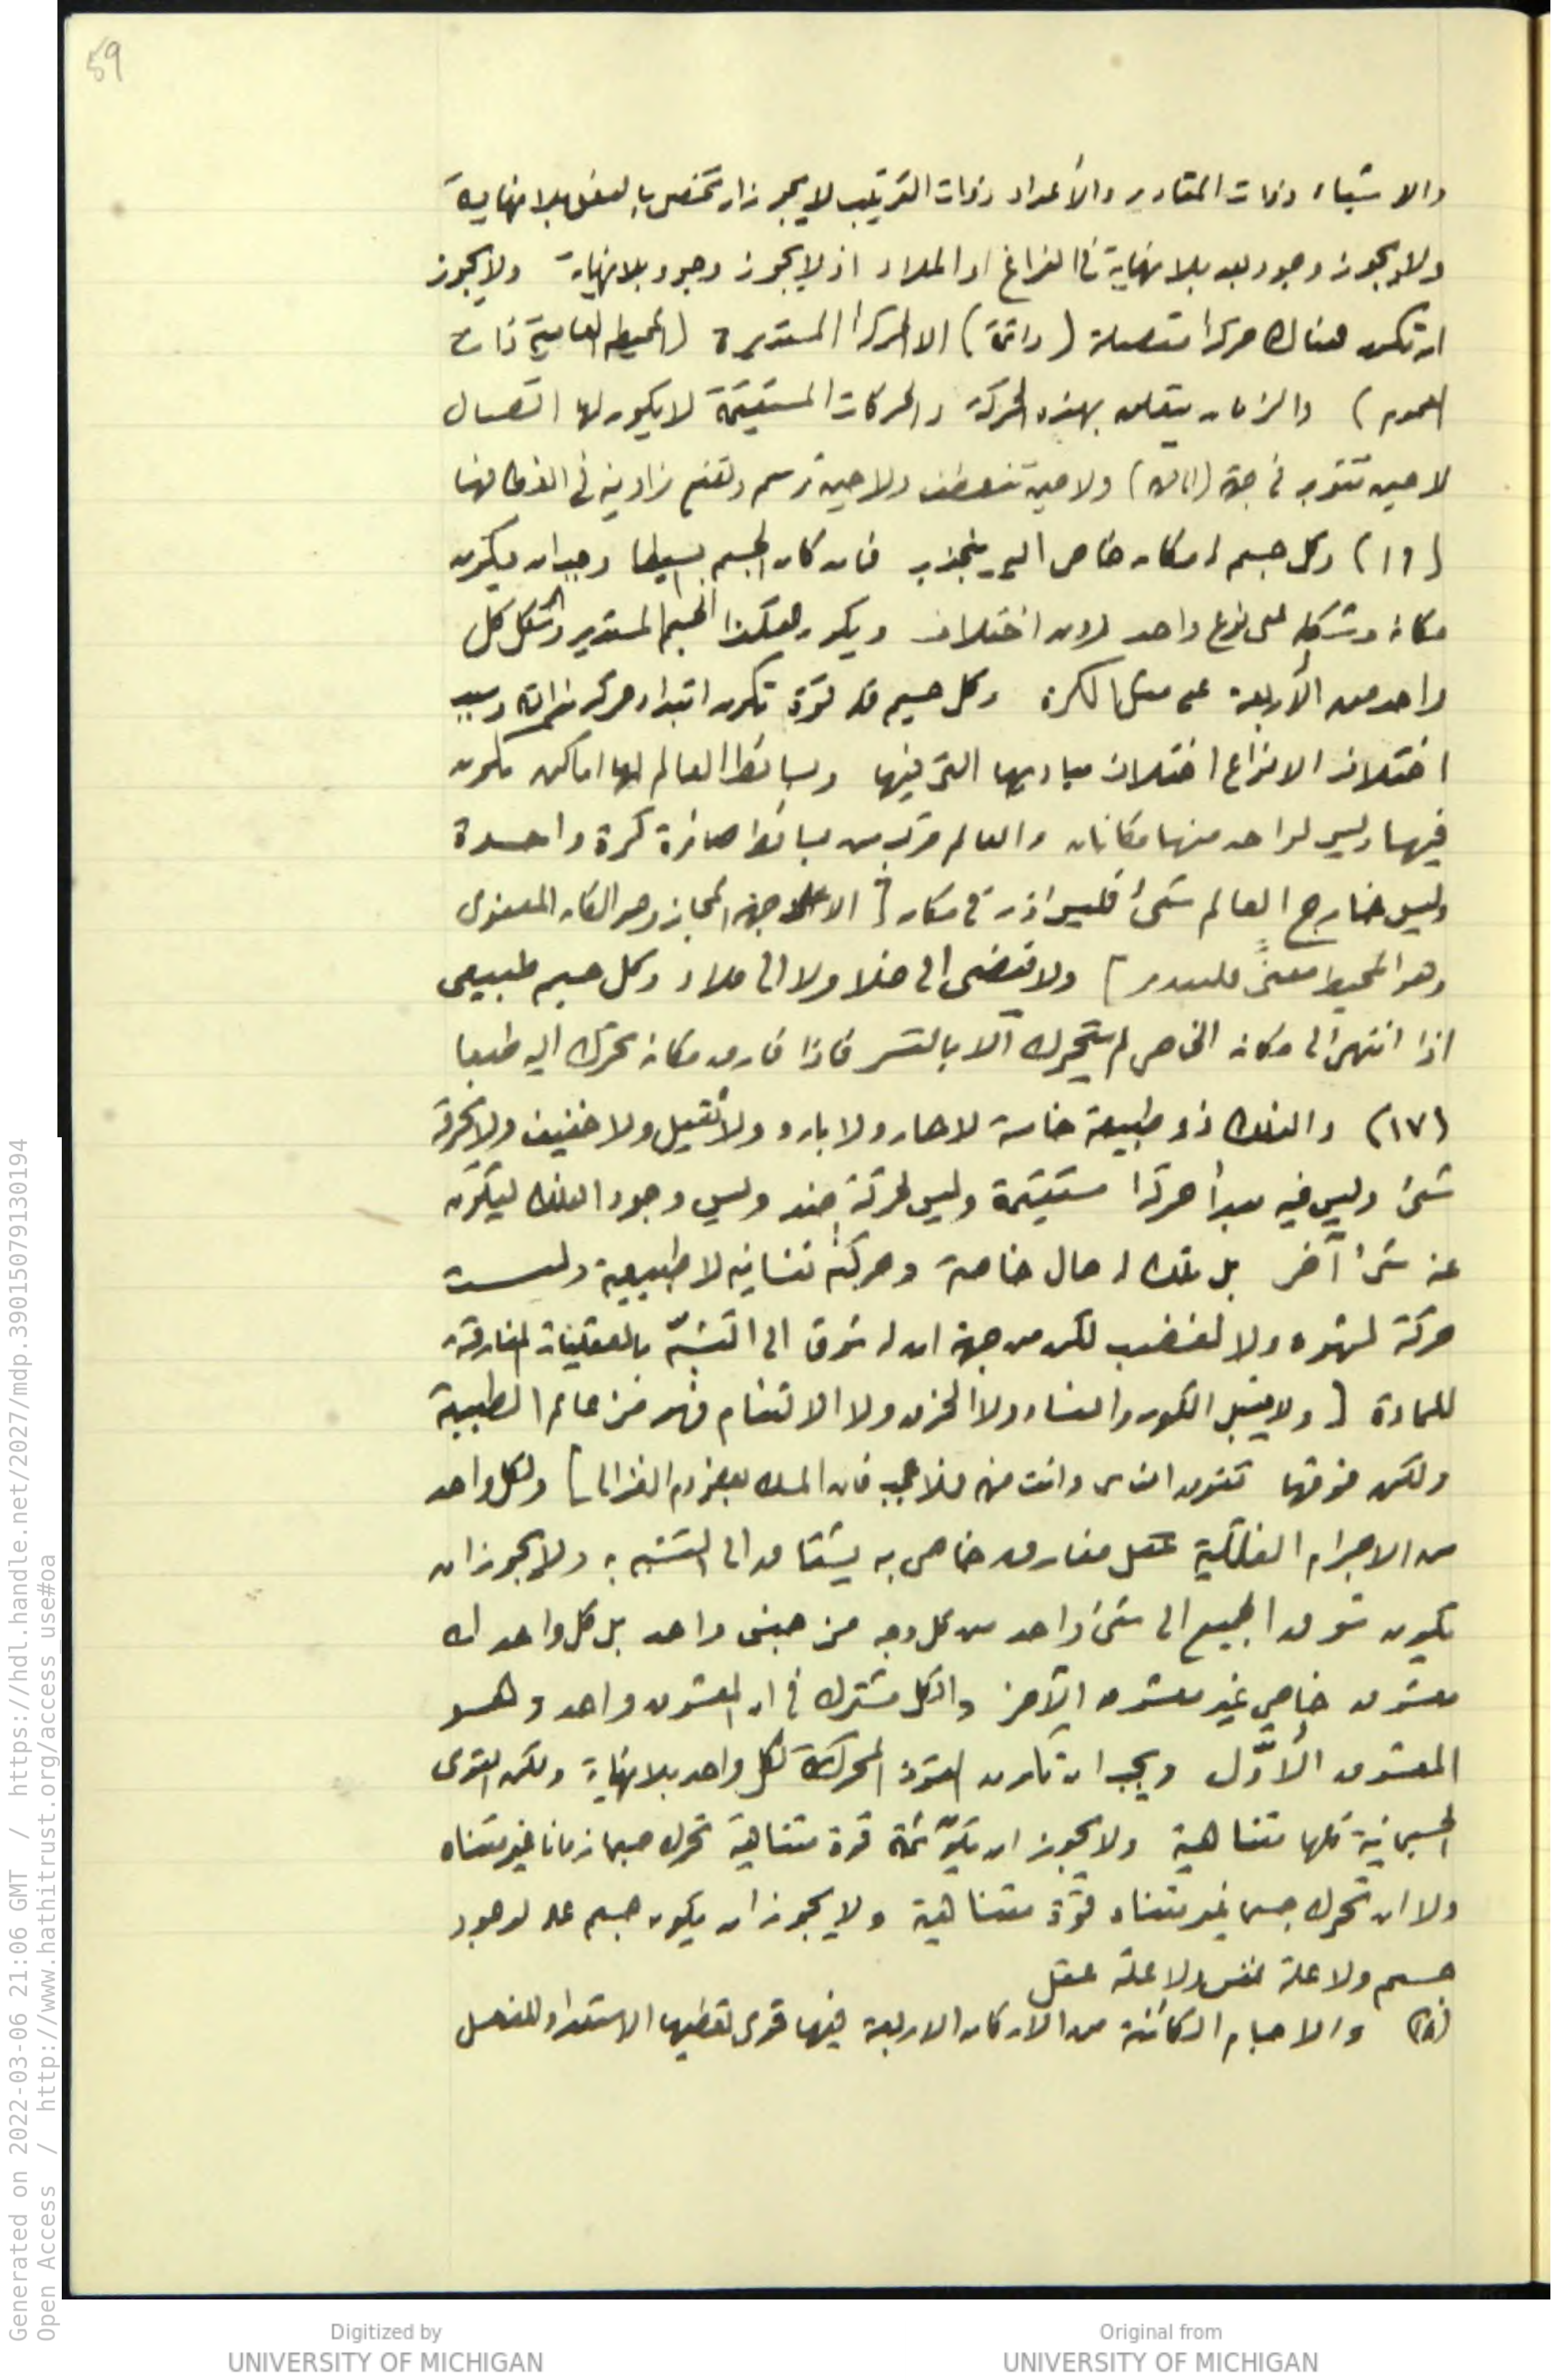 59
والاشياء ذوات المقادير والأعداد ذوات الترتيب لا يجوز ان تحصل بالفعل بلا نهاية
ولا يجوز وجود بعد بلا نهاية في الفراغ او الملاء اذ لا يجوز وجود بلا نهاية ولا يجوز
ان تكون هناك حركة متصلة (دائمة) الا الحركة المستديرة (المحيطه العامية ذات
العموم) والزمان يتعلق بهذه الحركة والحركات المستقيمة لا يكون لها اتصال
لا حين تتوجه في جهة ولا حين تنعطف ولا حين ترسم وتفتح زاوية في انعطافها
(١٦) وكل جسم له مكان خاص اليه ينجذب فان كان الجسم بسيطا وجب ان يكون
مكانه وشكله على نوع واحد بدون اختلاف ويكون هكذا الجسم المستدير والشكل كل
واحد من الأربعة على مثل الكرة وكل جسم له قوة تكون ابتداء حركته وسبب
اختلاف الانواع اختلاف مباديها التي فيها وبسائط العالم لها اماكن تكون
فيها وليس لواحد منها مكانان والعالم مركب من بسائط صائرة كرة واحدة
وليس خارج العالم شئ فليس اذن في مكان [الا على جهة المجاز وهو المكان المعنوى
وهو المحيط معنىً] ولا يفضى الى خلاء ولا الى ملاء وكل جسم طبيعى
اذا انتهى الى مكانه الخاص لم يتحرك الا بالقسر فاذا فارق مكانه تحرك اليه طبعا
(١٧) والفلك ذو طبيعة خامسة لا حار ولا بارد ولا ثقيل ولا خفيف ولا يخرقه
شئ وليس فيه مبدأ حركة مستقيمة وليس لحركته ضد وليس وجود الفلك ليتكون
عن شئ آخر بل تلك له حال خاصة وحركته نفسانيه لا طبيعية وليست
حركة لشهوة ولا لغضب لكن من جهة ان له شوق الى التشبّه بالعقليات المفارقة
للمادة [ولا يقبل الكون والفساد ولا الخرق ولا الالتئام فهو من عالم الطبيعة
ولكن فوقها تفوق الناس وانت منهم فلا عجب فان المسك بعض دم الغزال] ولكل واحد
من الاجرام الفلكية عقل مفارق خاص به يشتاق الى التشبه به ولا يجوز ان
يكون شوق الجميع الى شئ واحد من كل وجه من جنس واحد بل كل واحد له
معشوق خاص غير معشوق الآخر والكل مشترك في ان المعشوق واحد وهو
المعشوق الأوّل ويجب ان تكون القوة المحركة لكل واحد بلا نهاية ولكن القوى
الجسمانية كلها متناهية ولا يجوز ان تكون ثمة قوة متناهية تحرك جسما زمانا غير متناه
ولا ان تحرك جسما غير متناه قوّة متناهية ولا يجوز ان يكون جسم علة لوجود
جسم ولا علة نفس ولا علة عقل
(١٨) والاجسام الكائنة من الاركان الاربعة فيها قوى تعطيها الاستعداد للفعل
Generated on 2022-03-06 21:06 GMT / https://hdl.handle.net/2027/mdp.39015079130194
Open Access / http://www.hathitrust.org/access_use#oa
Digitized by
UNIVERSITY OF MICHIGAN
Original from
UNIVERSITY OF MICHIGAN